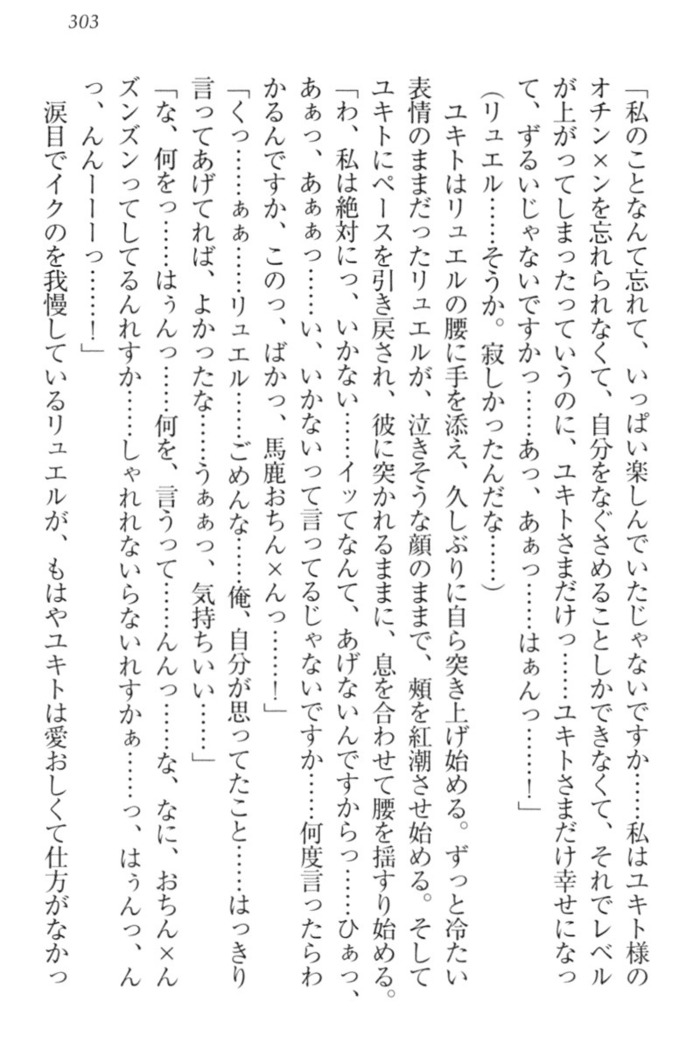 303
「私のことなんて忘れて、いっぱい楽しんでいたじゃないですか……私はユキト様の
オチン×ンを忘れられなくて、自分をなぐさめることしかできなくて、それでレベル
が上がってしまったっていうのに、ユキトさまだけっ……ユキトさまだけ幸せになっ
て、ずるいじゃないですかっ……あっ、あぁっ……はぁんっ……!」
(リュエル……そうか。寂しかったんだな……)
ユキトはリュエルの腰に手を添え、久しぶりに自ら突き上げ始める。ずっと冷たい
表情のままだったリュエルが、泣きそうな顔のままで、頬を紅潮させ始める。そして
ユキトにペースを引き戻され、彼に突かれるままに、息を合わせて腰を揺すり始める。
「わ、私は絶対にっ、いかない……イッてなんて、あげないんですからっ……ひぁっ、
あぁっ、あぁぁっ……い、いかないって言ってるじゃないですか……何度言ったらわ
かるんですか、このっ、ばかっ、馬鹿おちん×んっ……!」
「くっ……ぁぁ……リュエル……ごめんな……俺、自分が思ってたこと……はっきり
言ってあげてれば、よかったな……うぁぁっ、気持ちいい……」
「な、何をっ……はぅんっ……何を、言うって……んんっ……な、なに、おちん×ん
ズンズンってしてるんれすか……しゃれれないらないれすかぁ……っ、はぅんっ、ん
っ、んんーーーっ……!」
涙目でイクのを我慢しているリュエルが、もはやユキトは愛おしくて仕方がなかっ